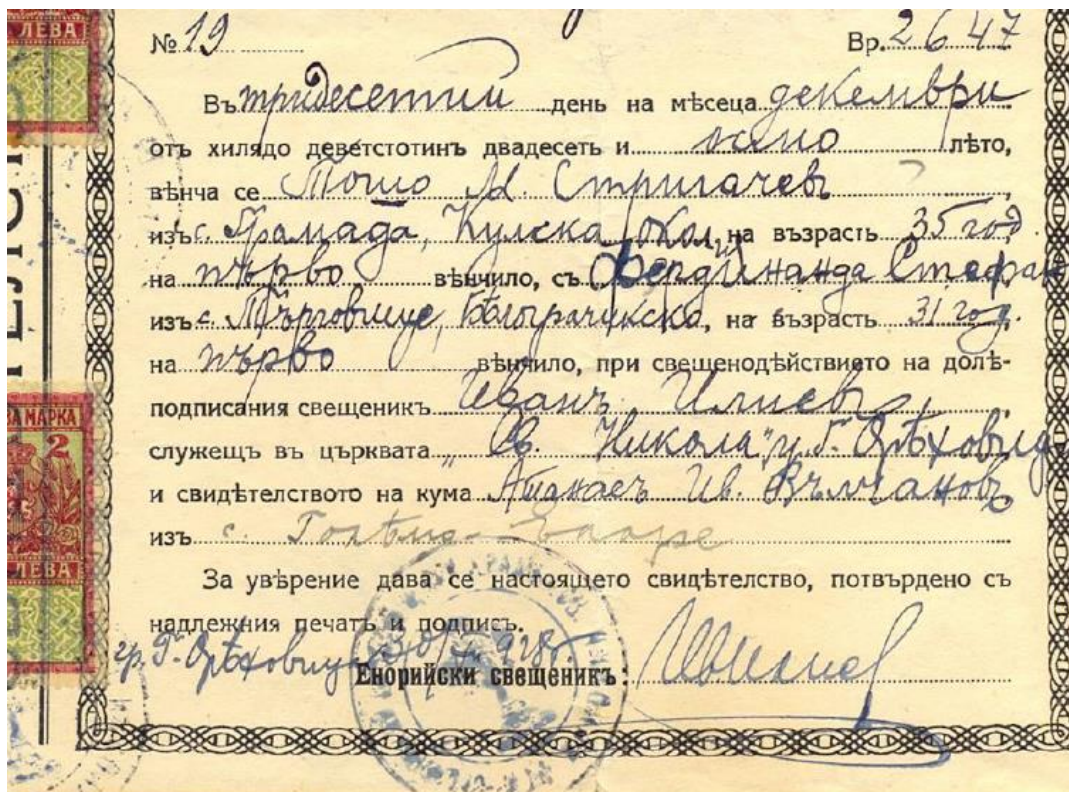 № 19 Вр. 2647
Въ тридесетий день на мѣсеца декември
отъ хилядо деветстотинъ двадесетъ и осмо лѣто,
вѣнча се Тошо М. Стригачевъ
изъ с. Грамада, Кулска окол., на възрасть 35 год.
на първо вѣнчило, съ Фердинанда Стефан
изъ с. Търговище, Бѣлоградчикско, на възрасть 31 год.
на първо вѣнчило, при свещенодѣйствието на долѣ-
подписания свещеникъ Иванъ Илиевъ,
служещъ въ църквата „Св. Никола", гр. Г. Орѣховица
и свидѣтелството на кума Атанасъ Ив. Вълчановъ
изъ с. Голѣмо
За увѣрение дава се настоящето свидѣтелство, потвърдено съ
надлежния печатъ и подписъ.
гр. Г. Орѣховица 30/ 928 г.
Енорийски свещеникъ:
ЛЕВА
ВА МАРКА
2
ЛЕВА